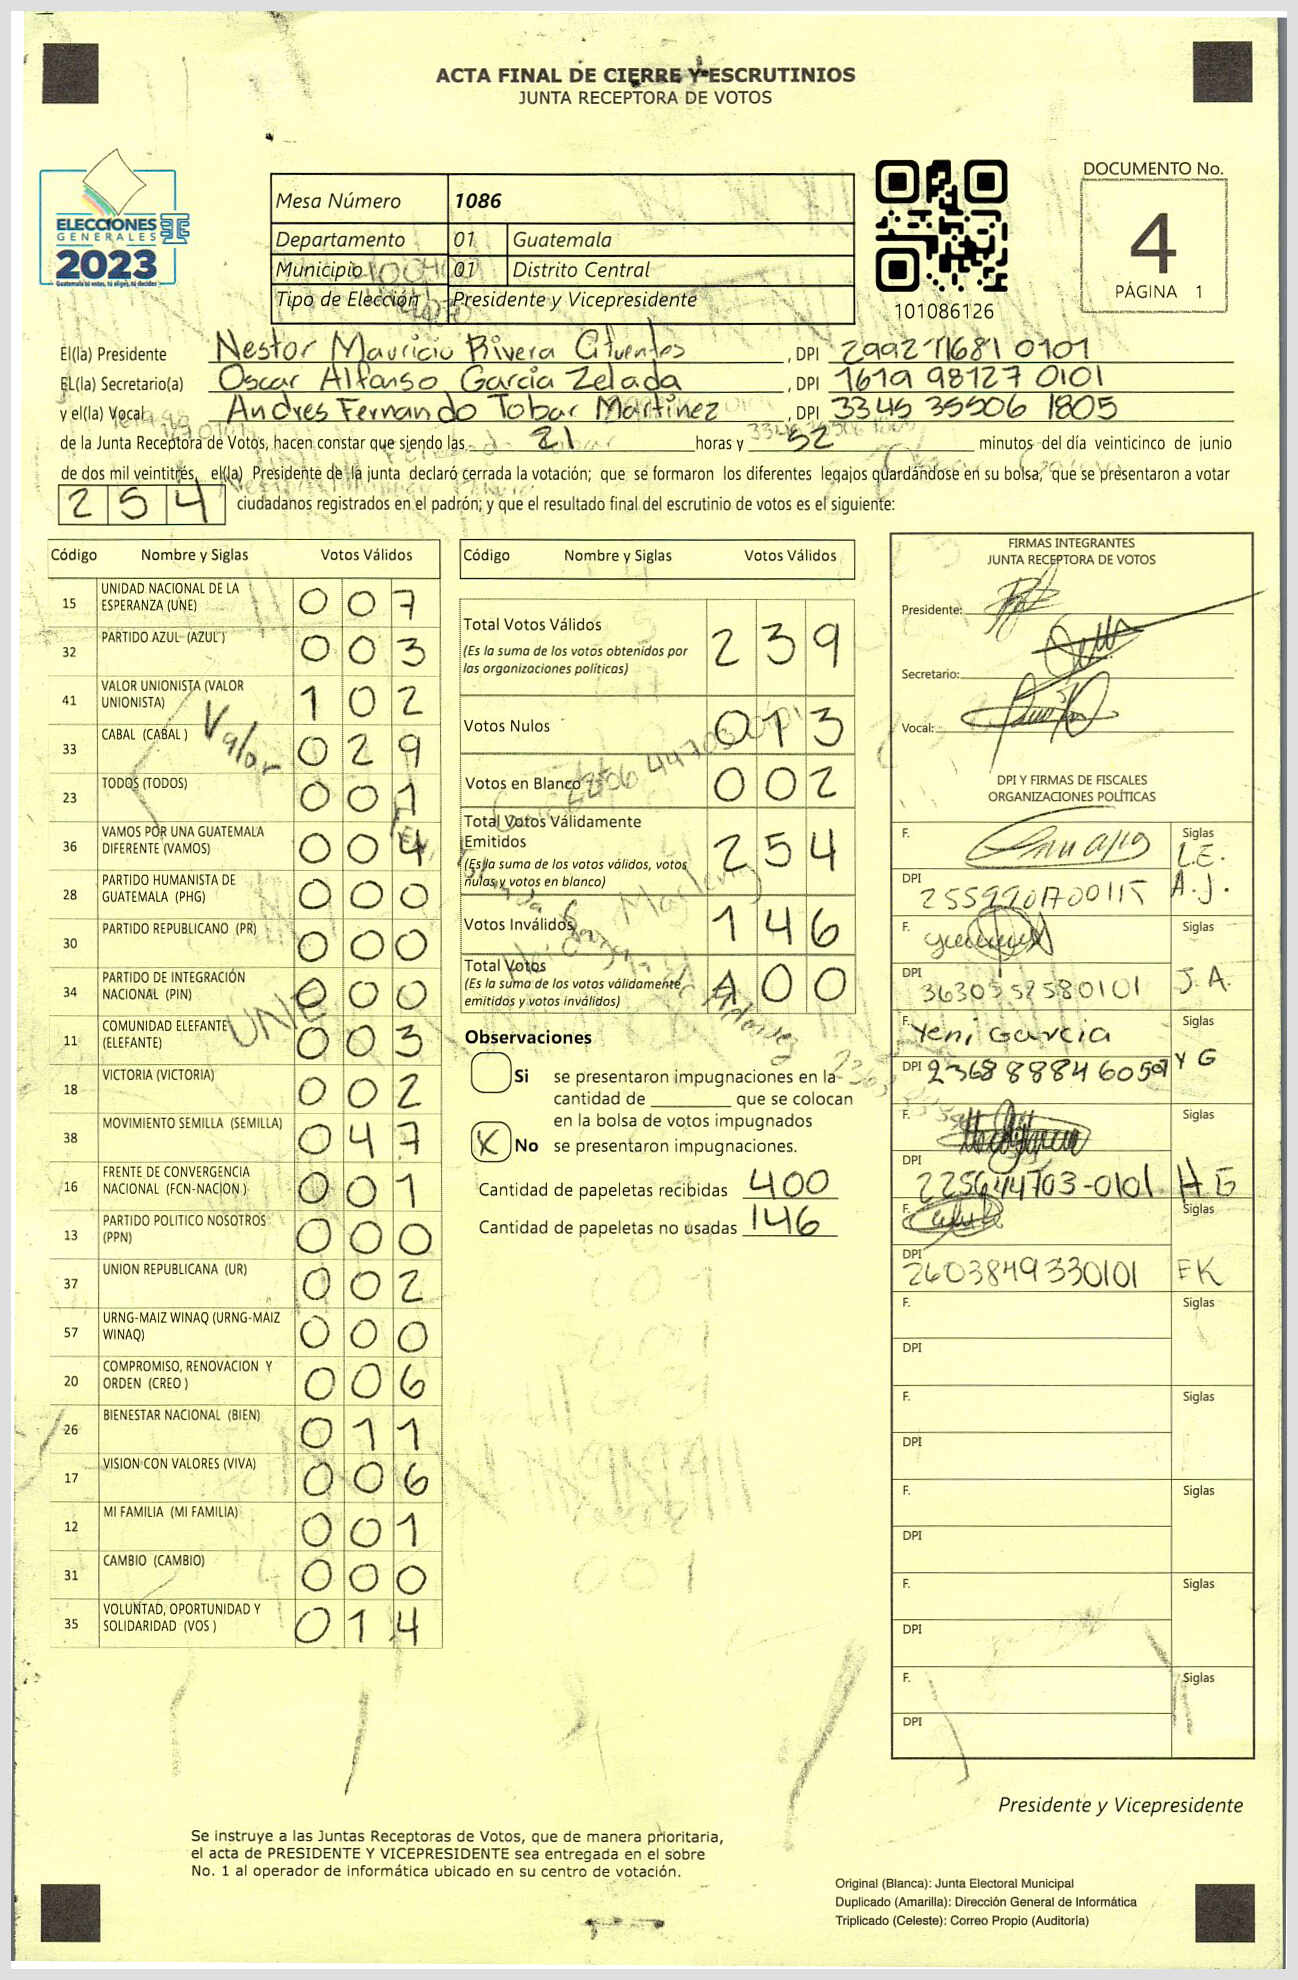 ACTA FINAL DE CIERRE Y ESCRUTINIOS
JUNTA RECEPTORA DE VOTOS
ELECCIONES
GENERALES
2023
Guatemala tú votas, tú eliges, tú decides
Mesa Número 1086
Departamento 01 Guatemala
Municipio 01 Distrito Central
Tipo de Elección Presidente y Vicepresidente
101086126
DOCUMENTO No.
4
PÁGINA 1
El(la) Presidente Nestor Mauricio Rivera Cifuentes, DPI 2992 71681 0101
EL(la) Secretario(a) Oscar Alfonso Garcia Zelada, DPI 1619 98127 0101
y el(la) Vocal Andres Fernando Tobar Martinez, DPI 3345 35506 1805
de la Junta Receptora de Votos, hacen constar que siendo las 21 horas y 52 minutos del día veinticinco de junio
de dos mil veintitrés, el(la) Presidente de la junta declaró cerrada la votación; que se formaron los diferentes legajos guardándose en su bolsa, que se presentaron a votar
254 ciudadanos registrados en el padrón; y que el resultado final del escrutinio de votos es el siguiente:
Código Nombre y Siglas Votos Válidos
15 UNIDAD NACIONAL DE LA ESPERANZA (UNE) 007
32 PARTIDO AZUL (AZUL) 003
41 VALOR UNIONISTA (VALOR UNIONISTA) 102
33 CABAL (CABAL ) 029
23 TODOS (TODOS) 001
36 VAMOS POR UNA GUATEMALA DIFERENTE (VAMOS) 004
28 PARTIDO HUMANISTA DE GUATEMALA (PHG) 000
30 PARTIDO REPUBLICANO (PR) 000
34 PARTIDO DE INTEGRACIÓN NACIONAL (PIN) 000
11 COMUNIDAD ELEFANTE (ELEFANTE) 003
18 VICTORIA (VICTORIA) 002
38 MOVIMIENTO SEMILLA (SEMILLA) 047
16 FRENTE DE CONVERGENCIA NACIONAL (FCN-NACION ) 001
13 PARTIDO POLITICO NOSOTROS (PPN) 000
37 UNION REPUBLICANA (UR) 002
57 URNG-MAIZ WINAQ (URNG-MAIZ WINAQ) 000
20 COMPROMISO, RENOVACION Y ORDEN (CREO ) 006
26 BIENESTAR NACIONAL (BIEN) 011
17 VISION CON VALORES (VIVA) 006
12 MI FAMILIA (MI FAMILIA) 001
31 CAMBIO (CAMBIO) 000
35 VOLUNTAD, OPORTUNIDAD Y SOLIDARIDAD (VOS ) 014
Valor
UNE
Código Nombre y Siglas Votos Válidos
Total Votos Válidos 239
(Es la suma de los votos obtenidos por
las organizaciones políticas)
Votos Nulos 013
Votos en Blanco 002
Total Votos Válidamente
Emitidos 254
(Es la suma de los votos válidos, votos
nulos y votos en blanco)
Votos Inválidos 146
Total Votos 400
(Es la suma de los votos válidamente
emitidos y votos inválidos)
Observaciones
Si se presentaron impugnaciones en la
cantidad de ________ que se colocan
en la bolsa de votos impugnados
X No se presentaron impugnaciones.
Cantidad de papeletas recibidas 400
Cantidad de papeletas no usadas 146
FIRMAS INTEGRANTES
JUNTA RECEPTORA DE VOTOS
Presidente:
Secretario:
Vocal:
DPI Y FIRMAS DE FISCALES
ORGANIZACIONES POLÍTICAS
F. Siglas L.E. A.J.
DPI 2559220700115
F. Siglas J.A.
DPI 3630552580101
F. Yeni Garcia Siglas Y G
DPI
F. Siglas H G
DPI 225644703-0101
F. Siglas EK
DPI 2603849330101
F. Siglas
DPI
F. Siglas
DPI
F. Siglas
DPI
F. Siglas
DPI
F. Siglas
DPI
Presidente y Vicepresidente
Se instruye a las Juntas Receptoras de Votos, que de manera prioritaria,
el acta de PRESIDENTE Y VICEPRESIDENTE sea entregada en el sobre
No. 1 al operador de informática ubicado en su centro de votación.
Original (Blanca): Junta Electoral Municipal
Duplicado (Amarilla): Dirección General de Informática
Triplicado (Celeste): Correo Propio (Auditoría)